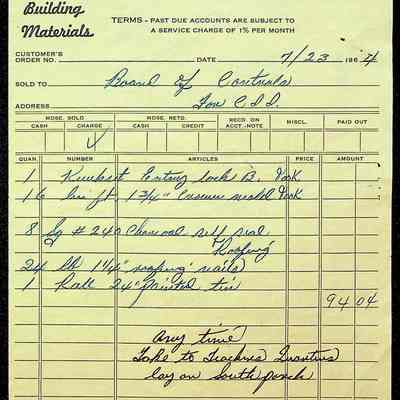 Building
Materials
TERMS - PAST DUE ACCOUNTS ARE SUBJECT TO
A SERVICE CHARGE OF 1% PER MONTH
CUSTOMER'S
ORDER NO. DATE 7/23 1964
SOLD TO Board of Controls
ADDRESS For C.D.D.
MDSE. SOLD MDSE. RETD. RECD. ON ACCT.-NOTE MISCL. PAID OUT
CASH CHARGE CASH CREDIT
✓
QUAN. NUMBER ARTICLES PRICE AMOUNT
1 Kwikset Entry lock B.
16 lin ft. 1 3/4"
8 Sq # 240 Charcoal self seal
Roofing
24 lb 1 1/4" roofing nails
1 Roll 24" painted tin
94 04
Any time
Take to Teachers Quarters
lay on South porch